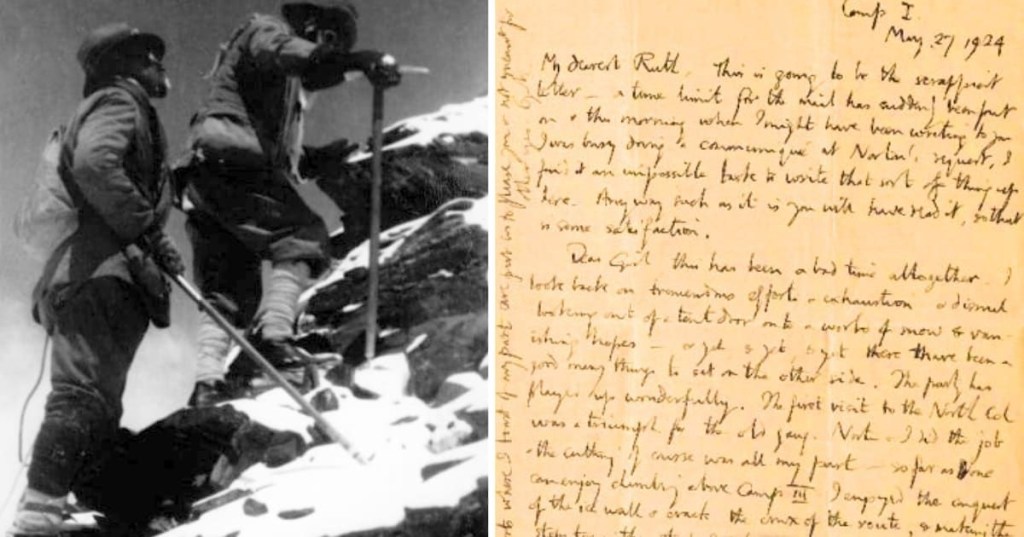 Camp I
May 27 1924
My dearest Ruth. This is going to be the scrappiest
letter — a time limit for the mail has suddenly been put
on & this morning when I might have been writing to you
I was busy doing a communiqué at Norton's request, I
find it an impossible task to write that sort of thing up
here. Anyway such as it is you will have read it, so that
is some satisfaction.
Dear Girl this has been a bad time altogether. I
look back on tremendous efforts & exhaustion & dismal
looking out of a tent door onto a world of snow & van-
ishing hopes — & yet & yet & yet there have been a
good many things to set on the other side. The party has
played up wonderfully. The first visit to the North Col
was a triumph for the old gang. Norton & I did the job
& the cutting of course was all my part — so far as one
can enjoy climbing above Camp III I enjoyed the conquest
of the ice wall & crack the crux of the route, & making the
steps too